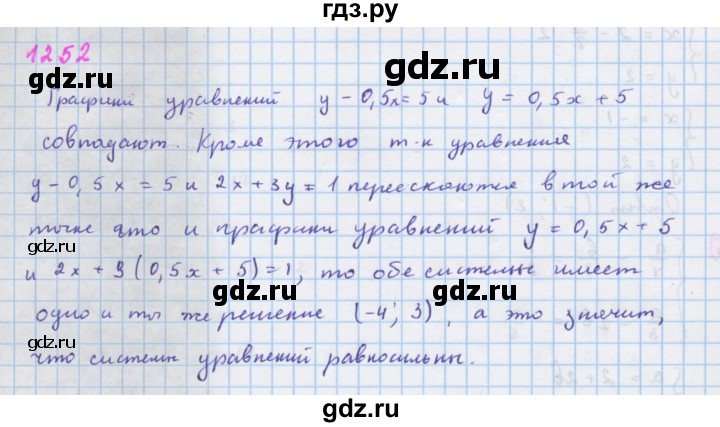 гдз.ру
1252
Графики уравнений y - 0,5x = 5 и y = 0,5x + 5
совпадают. Кроме этого т-к уравнения
y - 0,5x = 5 и 2x + 3y = 1 перескаются в той же
точке что и графики уравнений y = 0,5x + 5
и 2x + 3(0,5x + 5) = 1, то обе системы имеет
одно и ты же решение (-4; 3), а это значит,
что системы уравнений равносильны.
gdz.ru